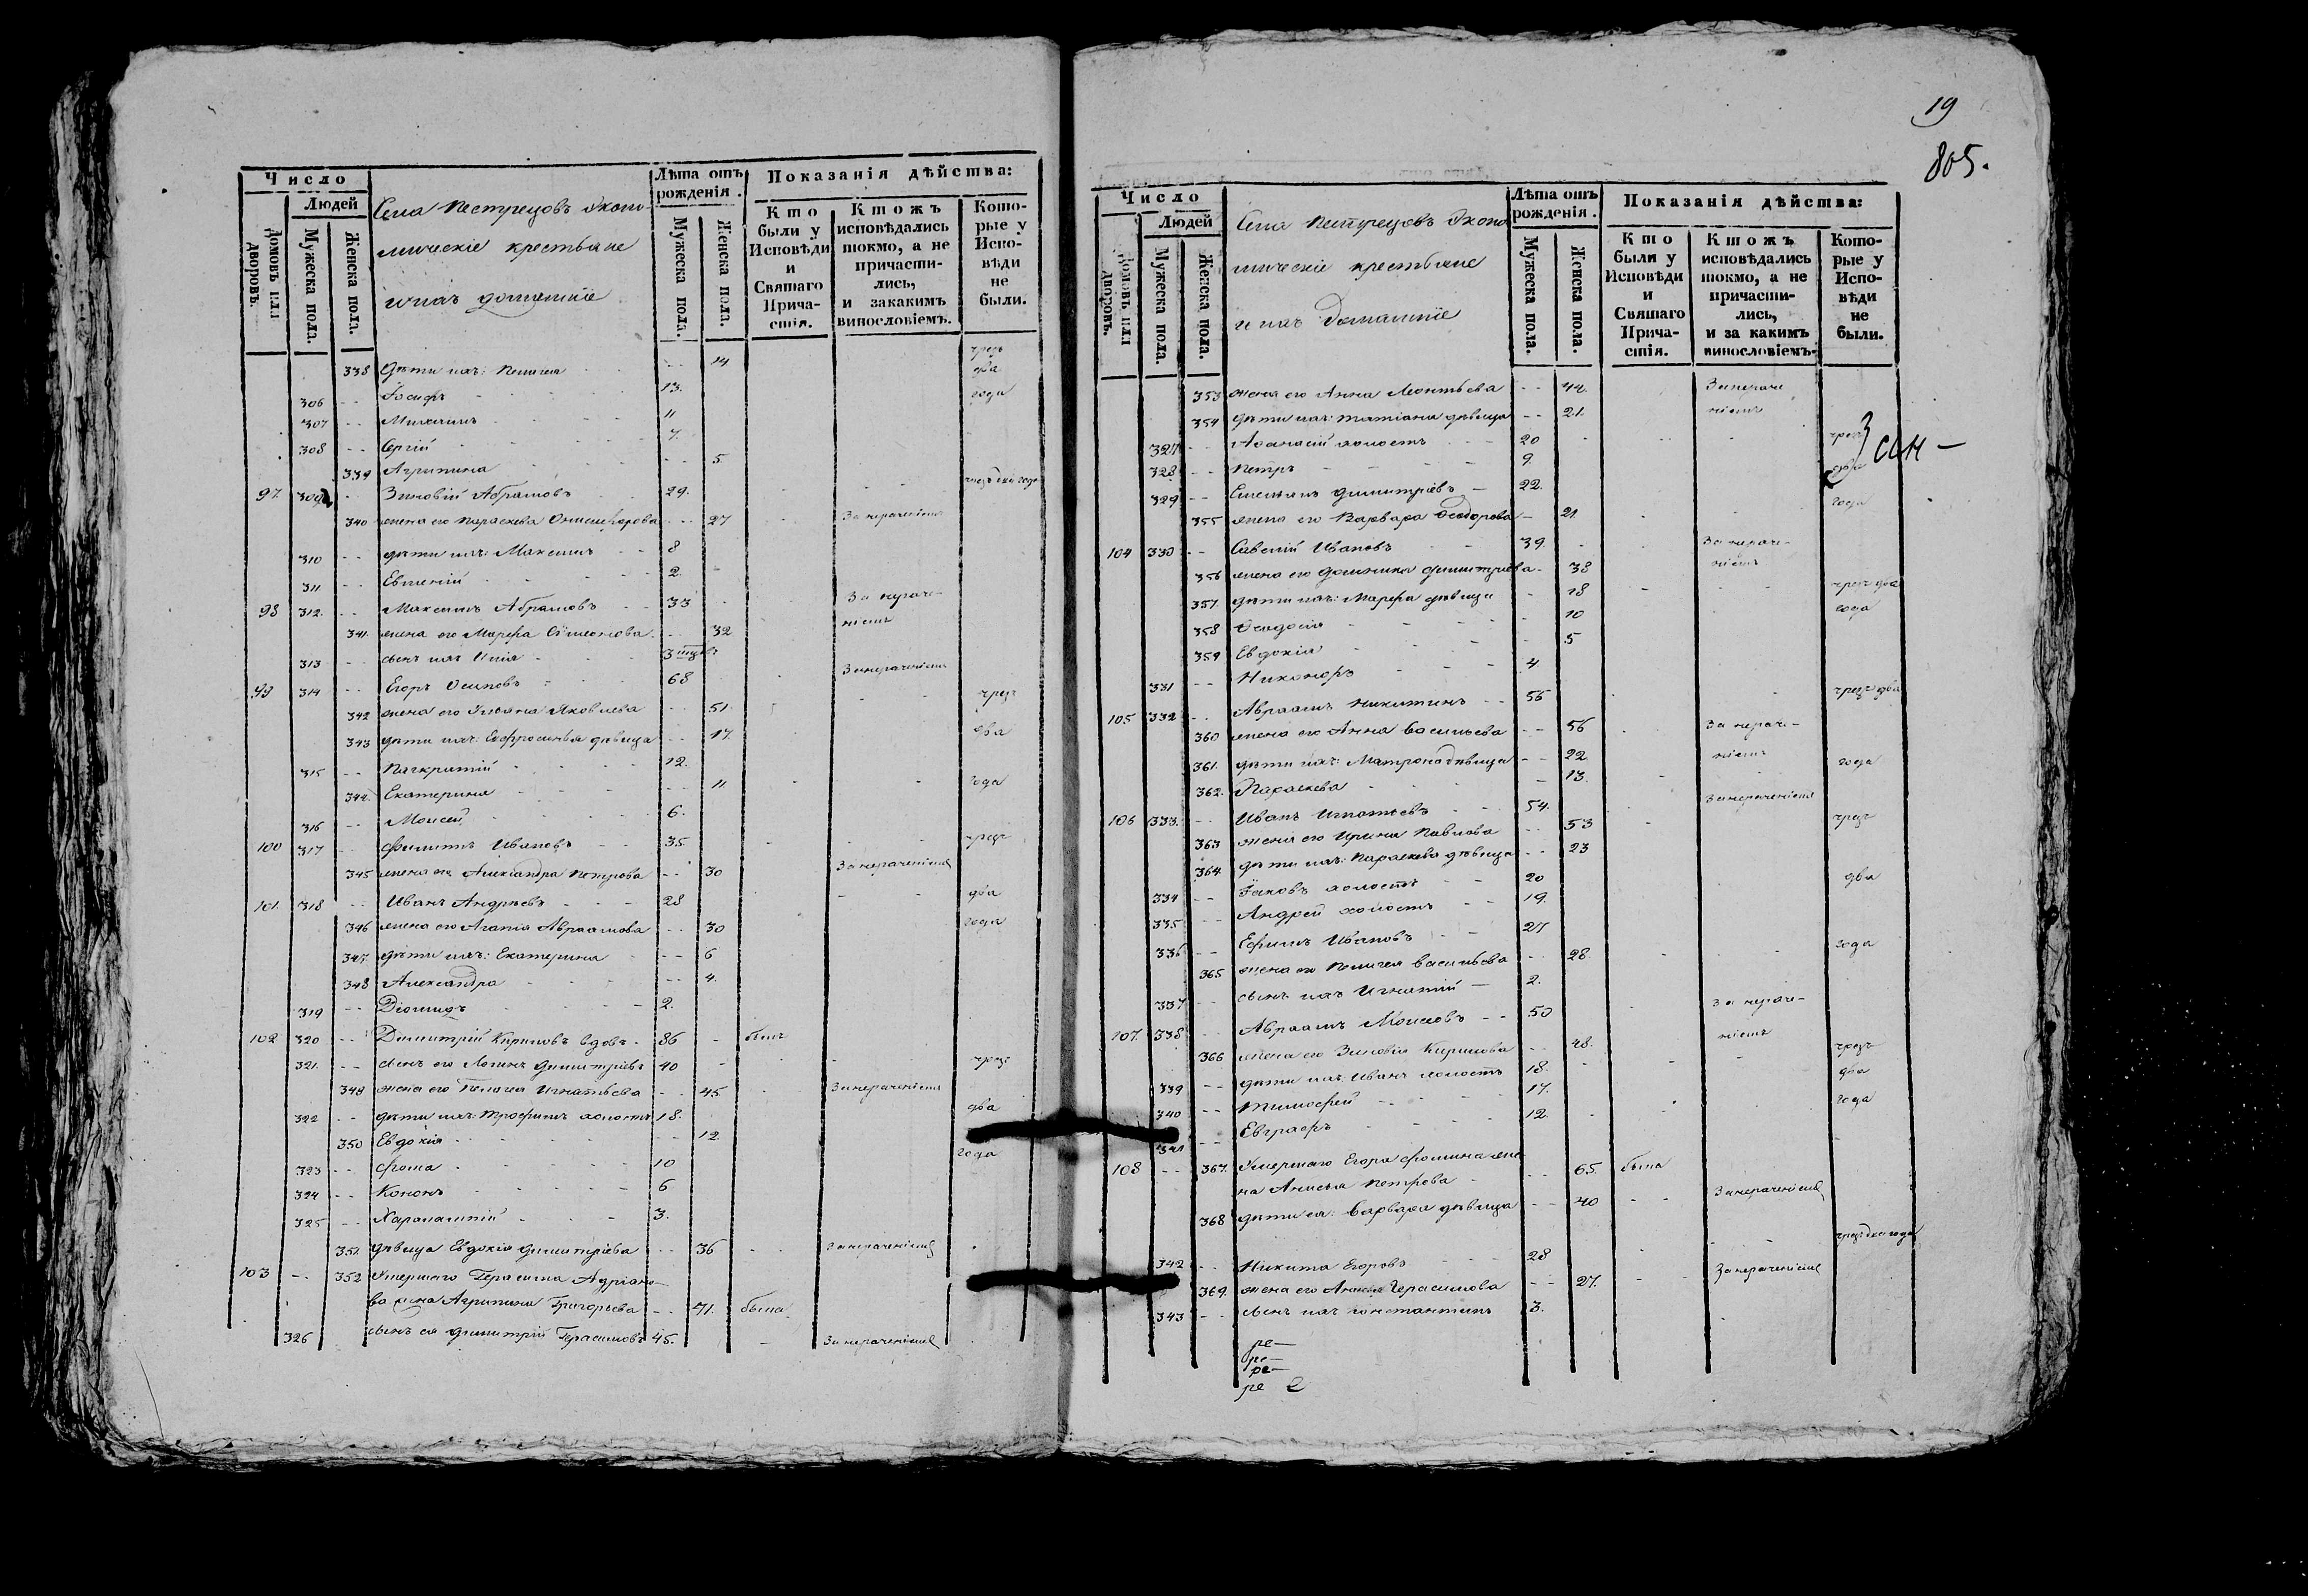 19
805.
Число
Людей
Домовъ или дворовъ.
Мужеска пола.
Женска пола.
Села Пестрецовъ Эконо-
мическіе крестьяне
и ихъ домашніе
Лѣта отъ рожденія.
Мужеска пола.
Женска пола.
Показанія дѣйства:
Кто были у Исповѣди и Святаго Причастія.
Ктожъ исповѣдались токмо, а не причастились, и закакимъ винословіемъ.
Которые у Исповѣди не были.
338 дѣти ихъ: Пелагея - - 14 чрезъ два
306 - - Іосифъ 13. года
307 - - Михаилъ 11
308 - - Сергій 7.
339 Агрипина - - 5
97. 309 - Зиновій Абрамовъ 29. чрезъ два года
340 жена его Параскева - - 27 За нераченіемъ
310 - - дѣти ихъ: Максимъ - - 8
311 - - Евгеній 2.
98 312. - - Максимъ Абрамовъ - - 33 За нераче-
341. жена его Марфа Сѵмеонова - - 32 ніемъ
313 - - сынъ ихъ Илія 3
99 314 - - Егоръ Осиповъ 68 За нераченіемъ
342 жена его Ульяна Яковлева - - 51. чрезъ
343 дѣти ихъ: Евфросинья дѣвица - - 17. два
315 - - Панкратій 12.
344. Екатерина - - 11 года
316 - - Моисей 6.
100 317 - - Филиппъ Ивановъ 35. чрезъ
345 жена его Александра Петрова - - 30 За нераченіемъ
101. 318 - - Иванъ Андреевъ 28 два
346 жена его Агапія Авраамова - - 30 года
347. дѣти ихъ: Екатерина - - 6
348 Александра - - 4.
319 - - Діомидъ 2.
102 320 - - Димитрій Кириловъ вдовъ - 86 - былъ
321. - - сынъ его Логинъ Димитріевъ 40 - чрезъ
349 жена его Пелагея Игнатьева - - 45 За нераченіемъ
322 - - дѣти ихъ: Трофимъ холостъ 18. два
350 Евдокія - - 12. года
323 - - Фома 10
324 - - Кононъ 6
325 - - Харалампій 3.
351. дѣвица Евдокія Димитріева - - 36 За нераченіемъ
103 - - 352 Умершаго Герасима Адріано-
ва жена Агрипина Григорьева - - 71. была
326 сынъ ея Димитрій Герасимовъ 45. - За нераченіемъ
Число
Людей
Домовъ или дворовъ.
Мужеска пола.
Женска пола.
Села Пестрецовъ Эконо
мическіе крестьяне
и ихъ домашніе
Лѣта отъ рожденія.
Мужеска пола.
Женска пола.
Показанія дѣйства:
Кто были у Исповѣди и Святаго Причастія.
Ктожъ исповѣдались токмо, а не причастились, и за какимъ винословіемъ.
Которые у Исповѣди не были.
353 жена его Анна Леонтьева - - 44. За нераче
354 дѣти ихъ: Татіана дѣвица - - 21. ніемъ
327 - - Афанасій холостъ 20 чрезъ
328 - - Петръ 9. два
329 - - Емельянъ Димитріевъ - 22. года
355 жена его Варвара Феодорова - 21.
104 330 - - Савелій Ивановъ 39. За нераче-
356 жена его Домника Димитріева - 38 ніемъ
357. дѣти ихъ: Марфа дѣвица - 18 чрезъ два
358 Феодосія - 10 года
359 Евдокія 5
331 - - Никаноръ 4.
105 332 - - Авраамъ Никитинъ - - 55 чрезъ два
360 жена его Анна Васильева - - 56 За нераче-
361. дѣти ихъ: Матрона дѣвица - - 22 ніемъ года
362. Параскева - 13.
106 333. - - Иванъ Игнатьевъ 54. За нераченіемъ
363 жена его Ирина Павлова - - 53 чрезъ
364. дѣти ихъ: Параскева дѣвица - - 23
334 - - Іаковъ холостъ 20 два
335 - - Андрей холостъ - - 19.
336 - - Ефимъ Ивановъ 27 года
365 жена его Пелагея Васильева - - 28.
337 - - сынъ ихъ Игнатій - 2.
107. 338 - - Авраамъ Моисеевъ - - 50 За нераче-
366 жена его Зиновія Кирилова - - 48. ніемъ чрезъ
339 - - дѣти ихъ: Иванъ холостъ 18. два
340 - - Тимофей 17. года
341 - - Евграфъ 12.
108 - - 367. Умершаго Егора Фомина же-
на Анисья Петрова - - 65 была
368 дѣти ея: Варвара дѣвица - - 40 - - За нераченіемъ
342 - - Никита Егоровъ 28 чрезъ два года
369. жена его Герасимова - - 27. За нераченіемъ
343 - - сынъ ихъ Константинъ 3.